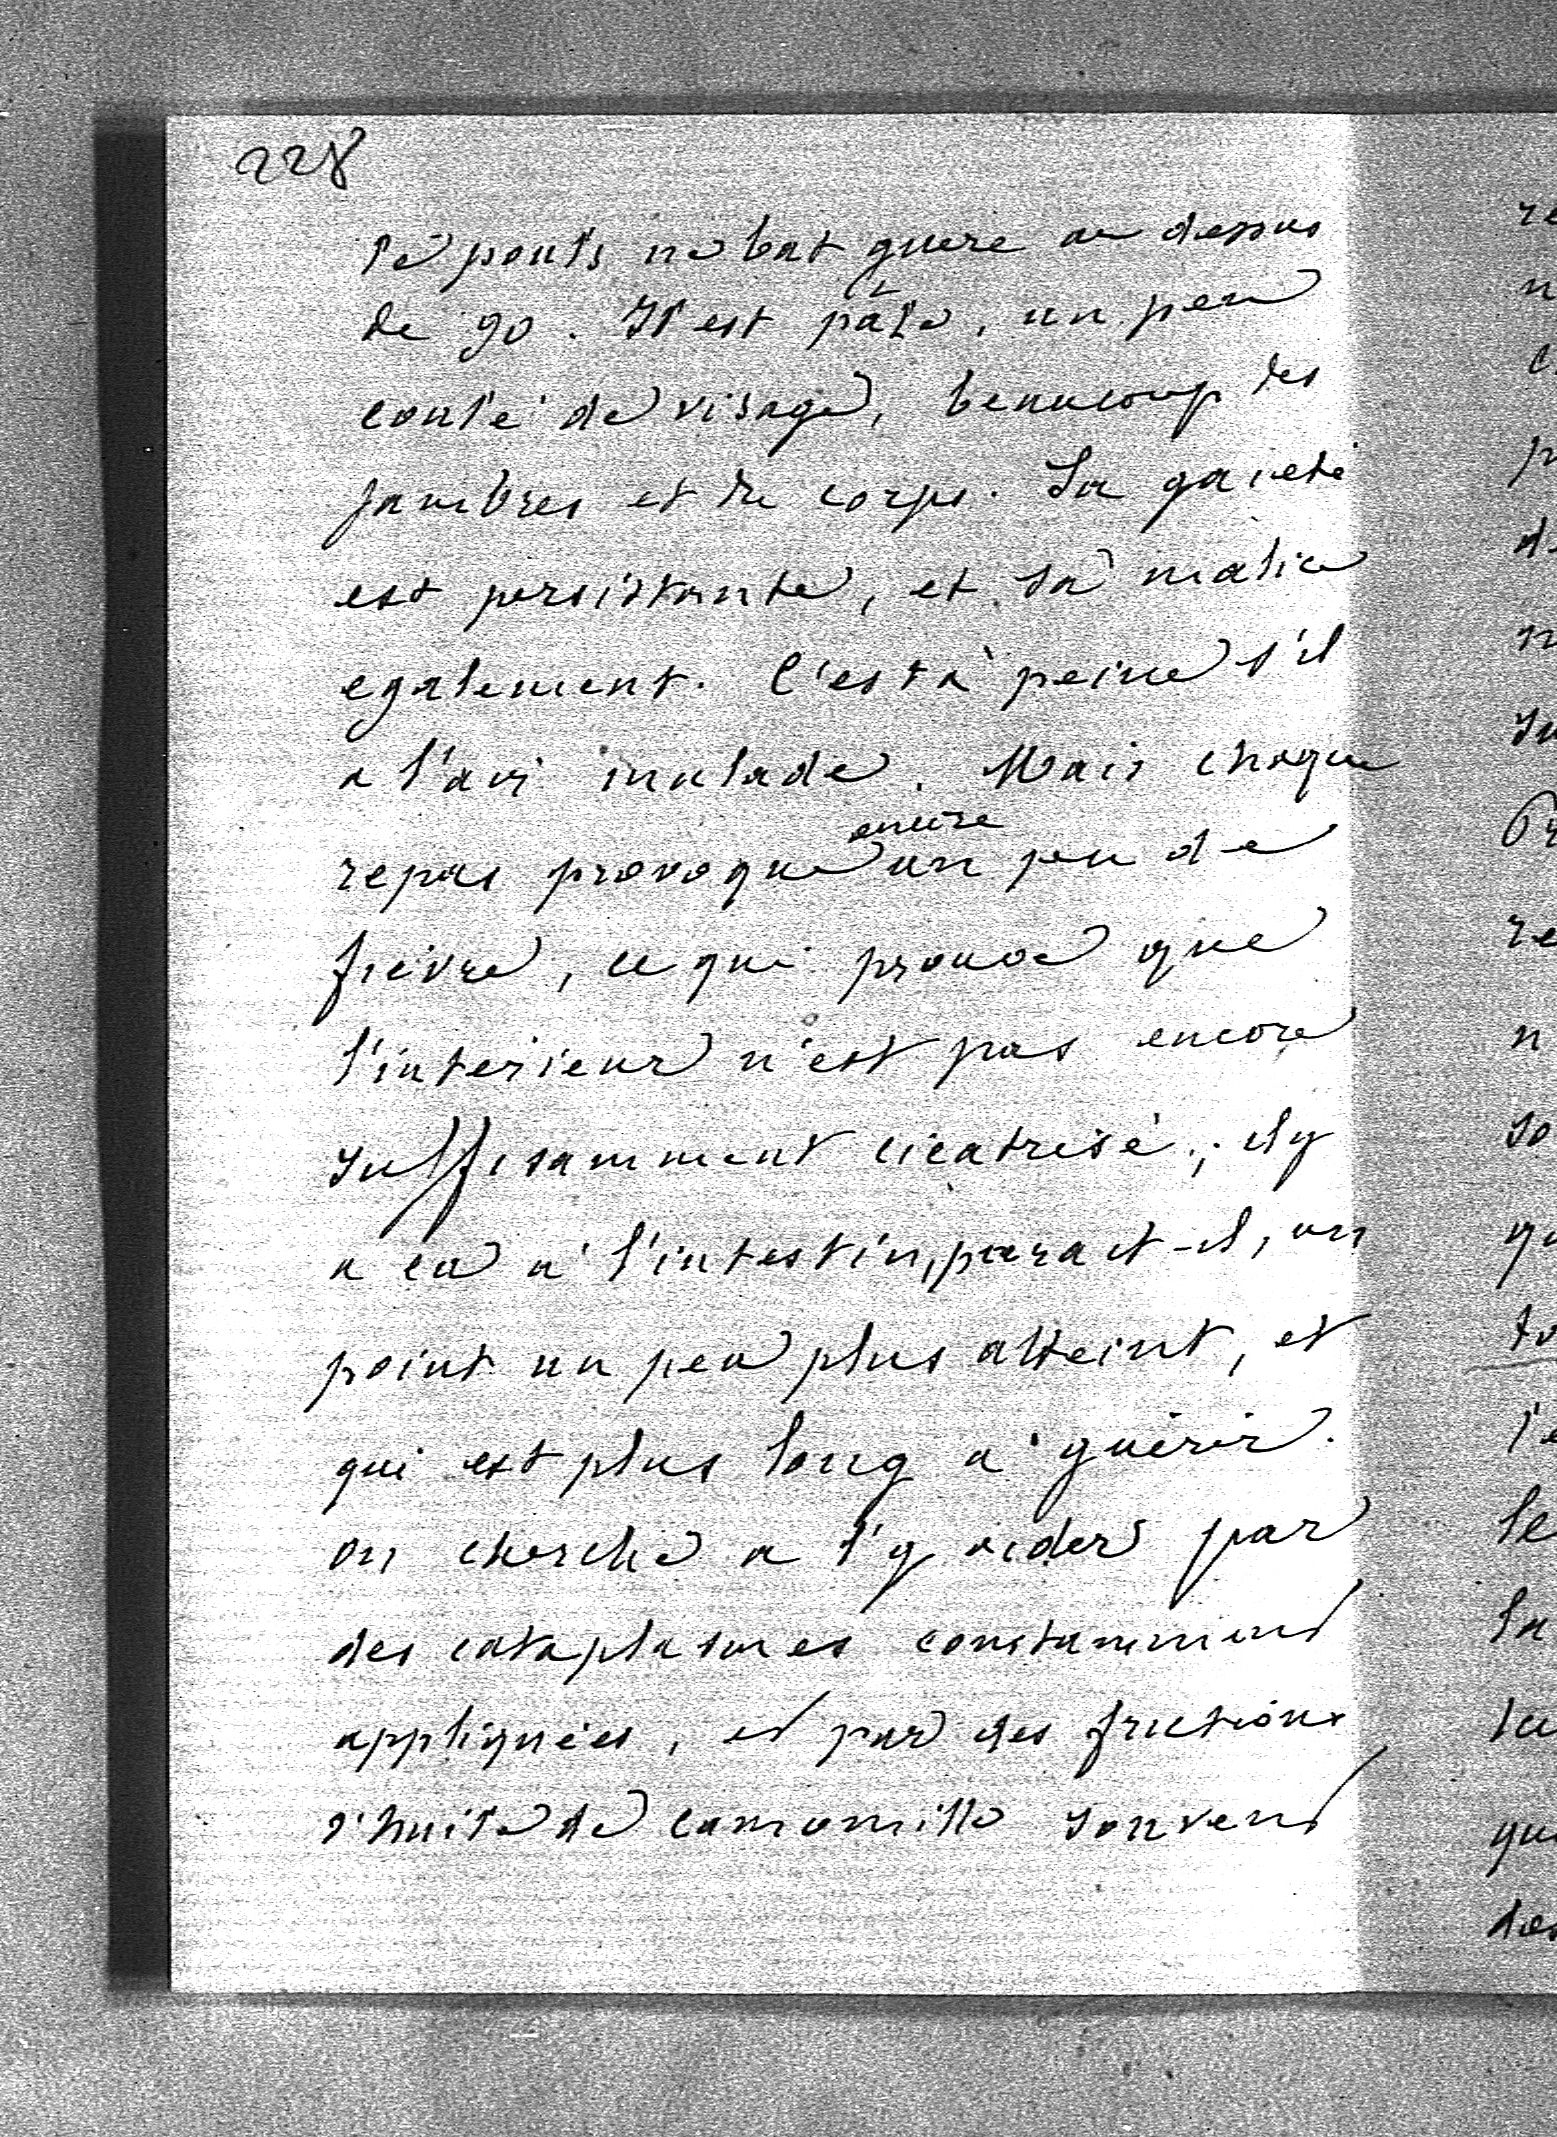 228
le pouls ne bat guere au dessus
de 90. Il est pâle, un peu
coulé de visage, beaucoup des
jambes et du corps. Sa gaieté
est persistante, et sa malice
egalement. C'est à peine s'il
a l'air malade. Mais chaque
encore
repas provoque un peu de
fievre, ce qui prouve que
l'interieur n'est pas encore
suffisamment cicatrisé; il y
a eu à l'intestin, parait-il, un
point un peu plus atteint, et
qui est plus long à guérir.
on cherche a l'y aider par
des cataplasmes constamment
appliquées, et par des frictions
d'huile de camomille souvent